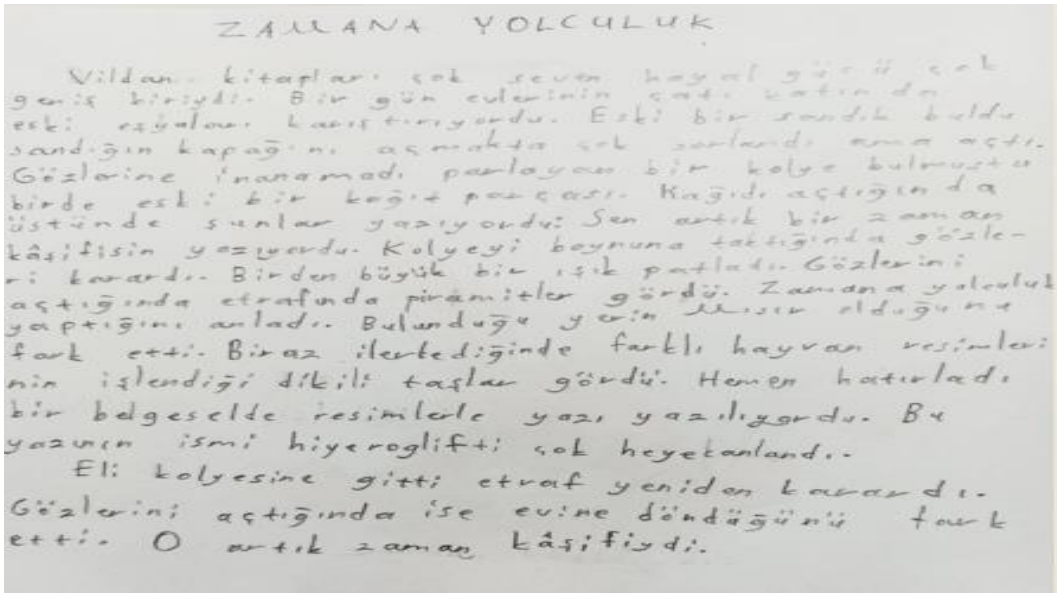 ZAMANA YOLCULUK
Vildan kitapları çok seven hayal gücü çok
geniş biriydi. Bir gün evlerinin çatı katında
eski eşyaları karıştırıyordu. Eski bir sandık buldu
sandığın kapağını açmakta çok zorlandı ama açtı.
Gözlerine inanamadı parlayan bir kolye bulmuştu
birde eski bir kağıt parçası. Kağıdı açtığında
üstünde şunlar yazıyordu: Sen artık bir zaman
kâşifisin yazıyordu. Kolyeyi boynuna taktığında gözle-
ri karardı. Birden büyük bir ışık patladı. Gözlerini
açtığında etrafında piramitler gördü. Zamana yolculuk
yaptığını anladı. Bulunduğu yerin Mısır olduğunu
fark etti. Biraz ilerlediğinde farklı hayvan resimleri
nin işlendiği dikili taşlar gördü. Hemen hatırladı
bir belgeselde resimlerle yazı yazılıyordu. Bu
yazının ismi hiyeroglifti çok heyekanlandı.
Eli kolyesine gitti etraf yeniden karardı.
Gözlerini açtığında ise evine döndüğünü fark
etti. O artık zaman kâşifiydi.